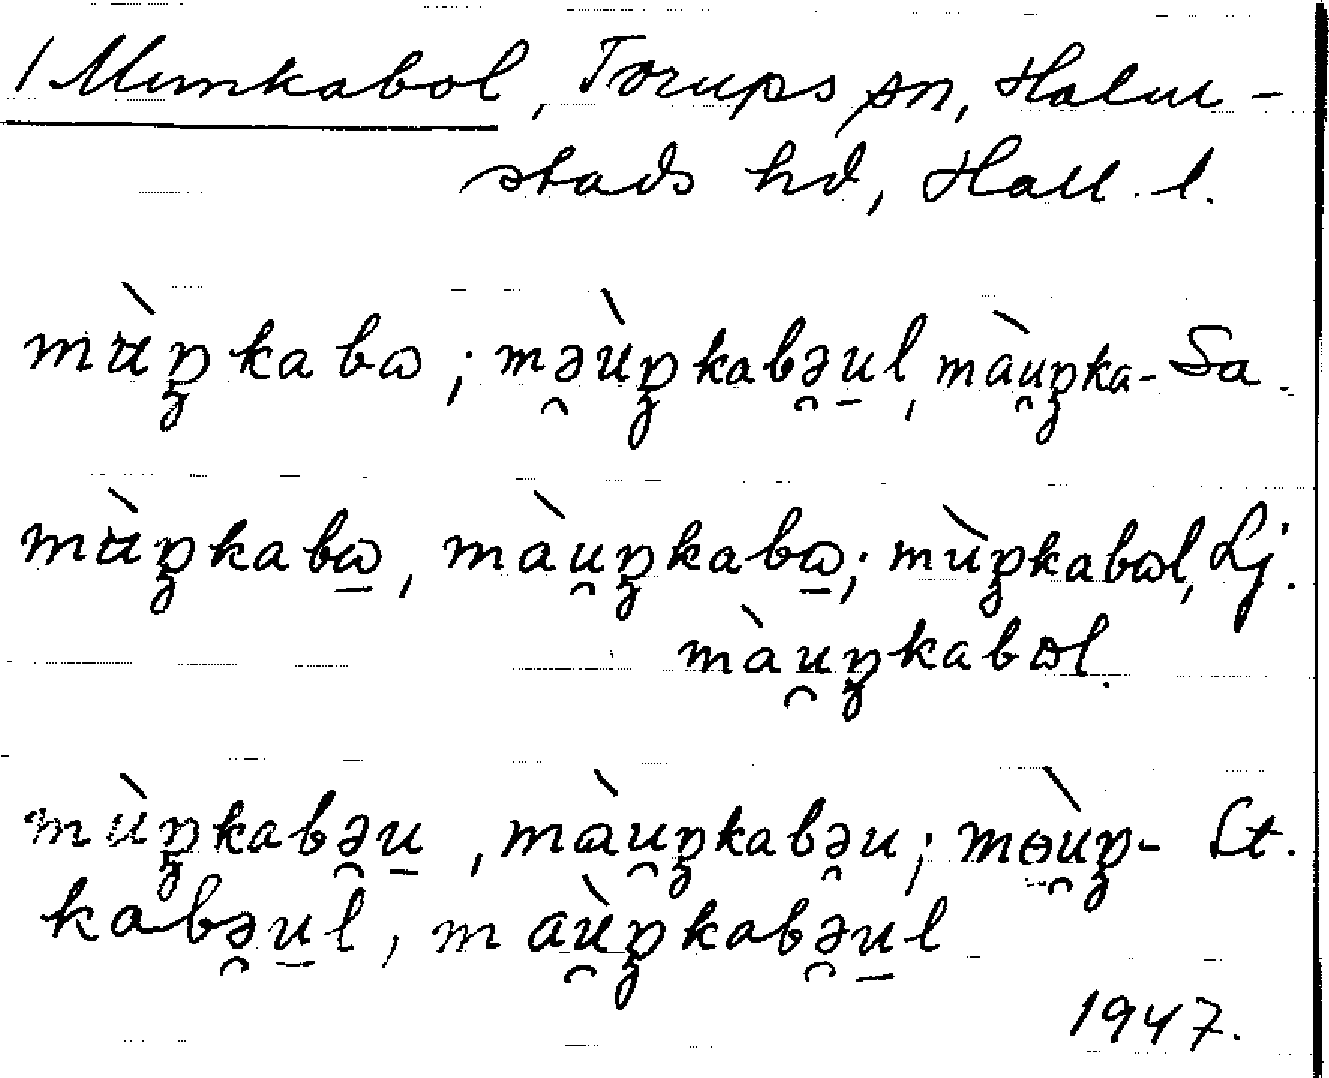 / Munkabol, Torups sn, Halm-
stads hd, Hall. l.
mùŋkabɷ; mə̯ùŋkabə̯u̠l, màu̯ŋka- Sa.
mùŋkabɷ̠, màu̯ŋkabɷ̠; mùŋkabɷl, Lj.
màu̯ŋkabɷl.
mùŋkabə̯u̠, màu̯ŋkabə̯u; mɵ̀u̯ŋ- St.
kabə̯u̠l, màu̯ŋkabə̯u̠l
1947.